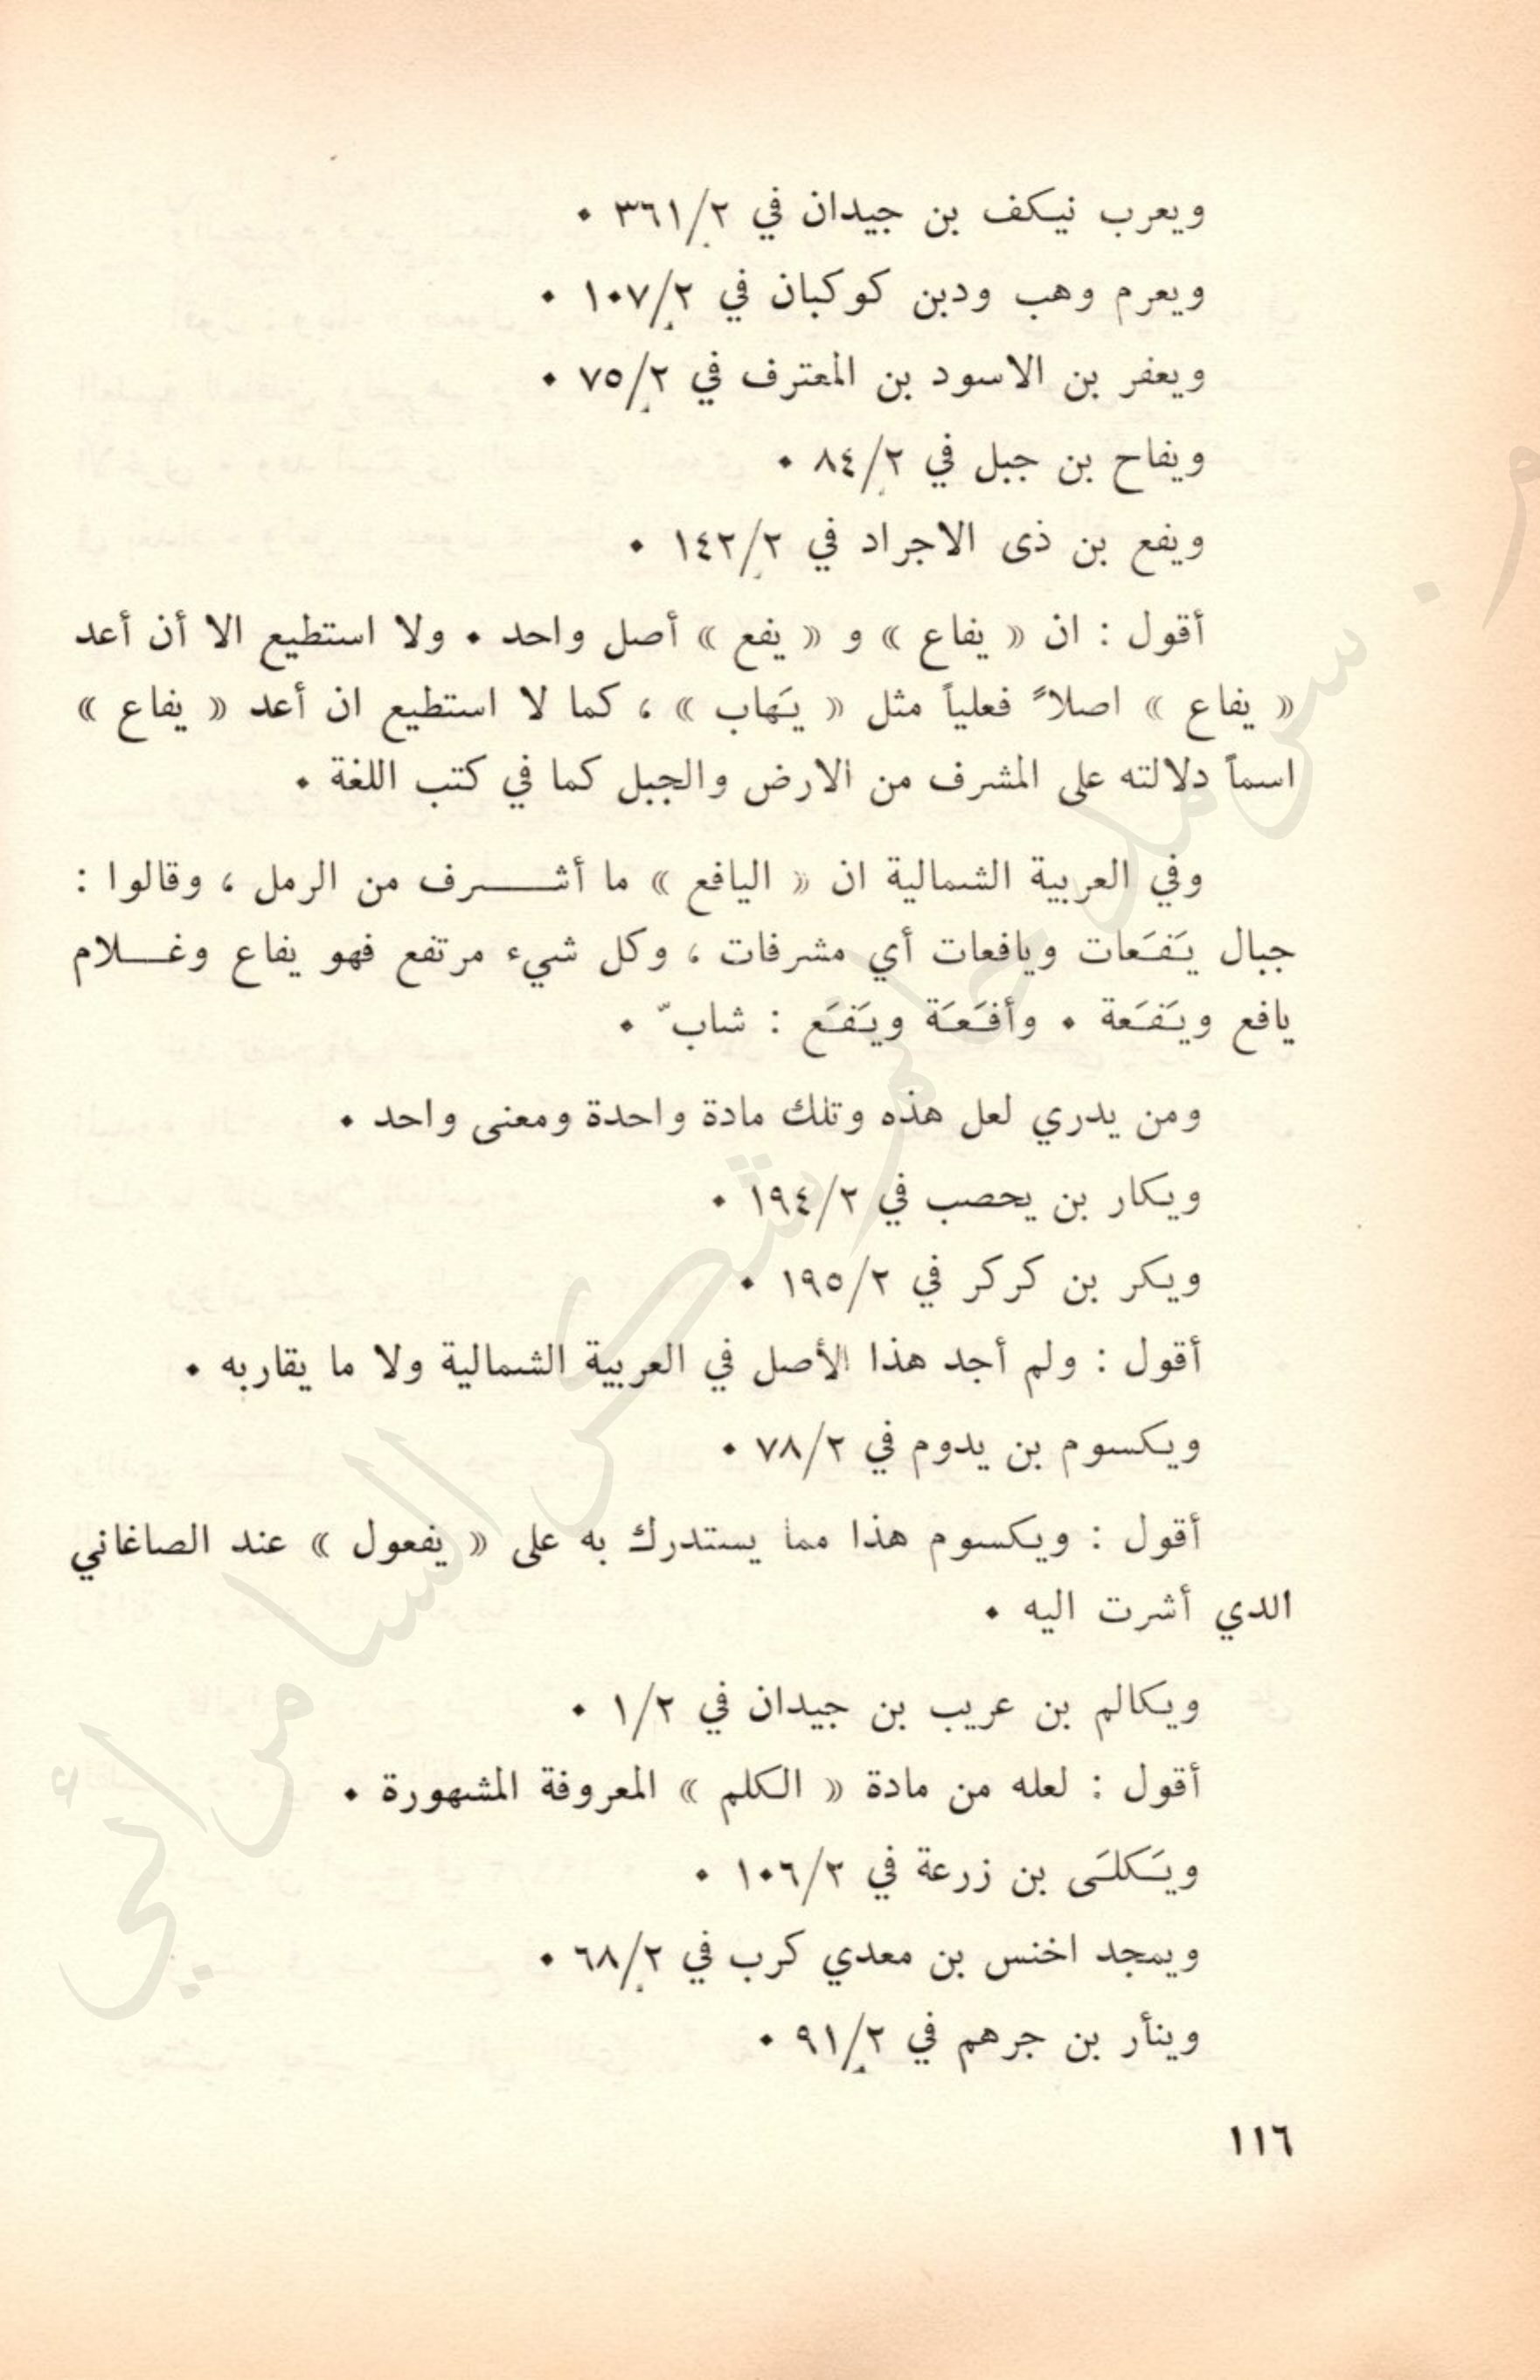 ويعرب نيكف بن جيدان في ٣٦١/٢ ٠
ويعرم وهب ودبن كوكبان في ١٠٧/٢ ٠
ويعفر بن الاسود بن المعترف في ٧٥/٢ ٠
ويفاح بن جبل في ٨٤/٢ ٠
ويفع بن ذى الاجراد في ١٤٢/٢ ٠
أقول : ان « يفاع » و « يفع » أصل واحد ٠ ولا استطيع الا أن أعد
« يفاع » اصلاً فعلياً مثل « يَهاب » ، كما لا استطيع ان أعد « يفاع »
اسماً دلالته على المشرف من الارض والجبل كما في كتب اللغة ٠
وفي العربية الشمالية ان « اليافع » ما أشـــرف من الرمل ، وقالوا :
جبال يَفَعات ويافعات أي مشرفات ، وكل شيء مرتفع فهو يفاع وغـــلام
يافع ويَفَعة ٠ وأفَعَة ويَفَع : شابّ ٠
ومن يدري لعل هذه وتلك مادة واحدة ومعنى واحد ٠
ويكار بن يحصب في ١٩٤/٢ ٠
ويكر بن كركر في ١٩٥/٢ ٠
أقول : ولم أجد هذا الأصل في العربية الشمالية ولا ما يقاربه ٠
ويكسوم بن يدوم في ٧٨/٢ ٠
أقول : ويكسوم هذا مما يستدرك به على « يفعول » عند الصاغاني
الدي أشرت اليه ٠
ويكالم بن عريب بن جيدان في ١/٢ ٠
أقول : لعله من مادة « الكلم » المعروفة المشهورة ٠
ويَكلَى بن زرعة في ١٠٦/٢ ٠
ويمجد اخنس بن معدي كرب في ٦٨/٢ ٠
وينأر بن جرهم في ٩١/٢ ٠
١١٦